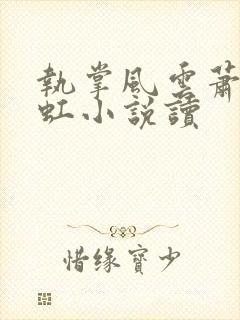 執掌風雲蕭
虹小說讀
惜缘寳少